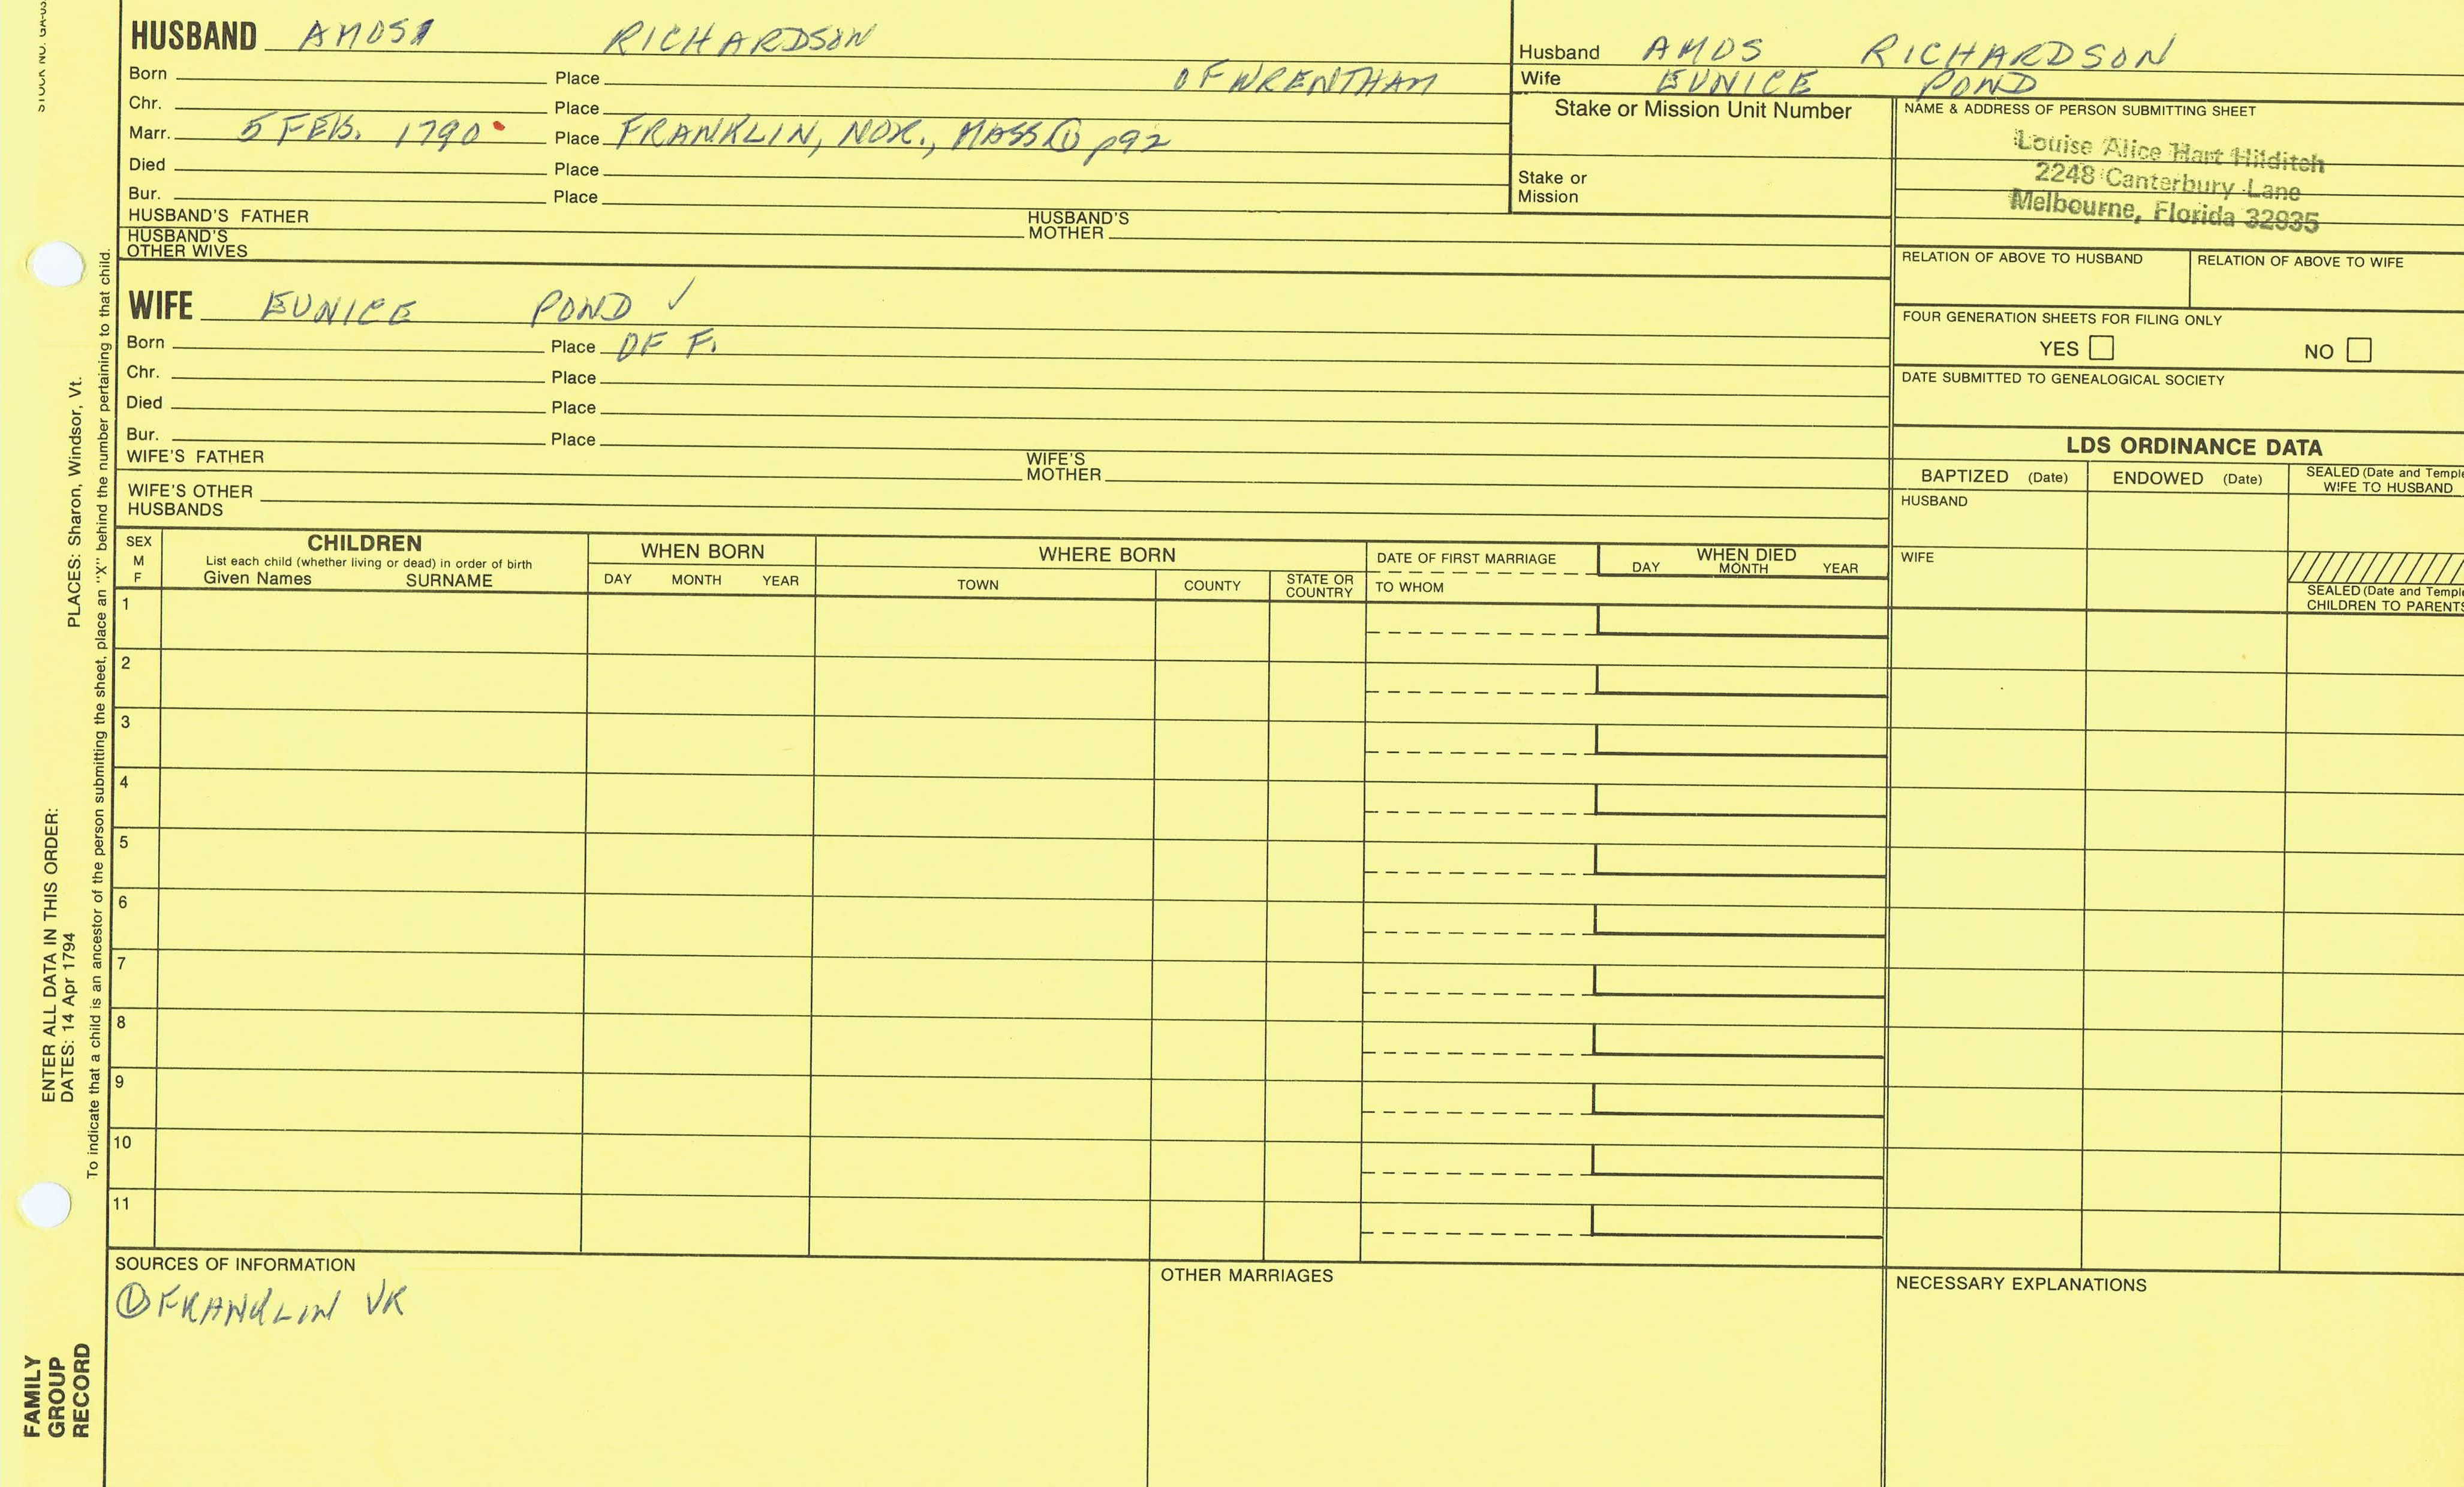 STOCK NO. GA-03
HUSBAND AMOS RICHARDSON
Born Place OF WRENTHAM
Chr. Place
Marr. 5 FEB. 1790 Place FRANKLIN, NOR., MASS ① p92
Died Place
Bur. Place
HUSBAND'S FATHER HUSBAND'S MOTHER
HUSBAND'S OTHER WIVES
Husband AMOS RICHARDSON
Wife EUNICE POND
Stake or Mission Unit Number
Stake or Mission
NAME & ADDRESS OF PERSON SUBMITTING SHEET
Louise Alice Hart Hilditch
2248 Canterbury Lane
Melbourne, Florida 32935
RELATION OF ABOVE TO HUSBAND RELATION OF ABOVE TO WIFE
FOUR GENERATION SHEETS FOR FILING ONLY
YES NO
DATE SUBMITTED TO GENEALOGICAL SOCIETY
WIFE EUNICE POND ✓
Born Place OF F.
Chr. Place
Died Place
Bur. Place
WIFE'S FATHER WIFE'S MOTHER
WIFE'S OTHER HUSBANDS
LDS ORDINANCE DATA
BAPTIZED (Date) ENDOWED (Date) SEALED (Date and Temple
WIFE TO HUSBAND
HUSBAND
WIFE
SEALED (Date and Temple
CHILDREN TO PARENTS
SEX
M
F
CHILDREN
List each child (whether living or dead) in order of birth
Given Names SURNAME
WHEN BORN
DAY MONTH YEAR
WHERE BORN
TOWN COUNTY STATE OR COUNTRY
DATE OF FIRST MARRIAGE
TO WHOM
WHEN DIED
DAY MONTH YEAR
1
2
3
4
5
6
7
8
9
10
11
SOURCES OF INFORMATION
① FRANKLIN VR
OTHER MARRIAGES
NECESSARY EXPLANATIONS
ENTER ALL DATA IN THIS ORDER:
DATES: 14 Apr 1794 PLACES: Sharon, Windsor, Vt.
To indicate that a child is an ancestor of the person submitting the sheet, place an "X" behind the number pertaining to that child.
FAMILY
GROUP
RECORD